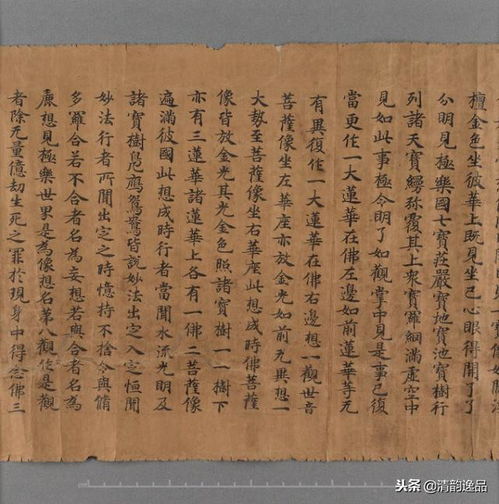 檀金色坐彼華上既見坐已心眼得開了了
分明見極樂國七寶莊嚴寶地寶池寶樹行
列諸天寶縵弥覆其上衆寶羅網滿虛空中
見如此事極令明了如觀掌中見是事已復
當更作一大蓮華在佛左邊如前蓮華等无
有異復作一大蓮華在佛右邊想一觀世音
菩薩像坐左華座亦放金光如前无異想一
大勢至菩薩像坐右華座此想成時佛菩薩
像皆放金光其光金色照諸寶樹一一樹下
亦有三蓮華諸蓮華上各有一佛二菩薩像
遍滿彼國此想成時行者當聞水流光明及
諸寶樹鳧鴈鴛鴦皆說妙法出定入定恒聞
妙法行者所聞出定之時憶持不捨令與脩
多羅合若不合者名為妄想若與合者名為
麁想見極樂世界是為像想名第八觀作是觀
者除无量億劫生死之罪於現身中得念佛三
头条 @清韵逸品